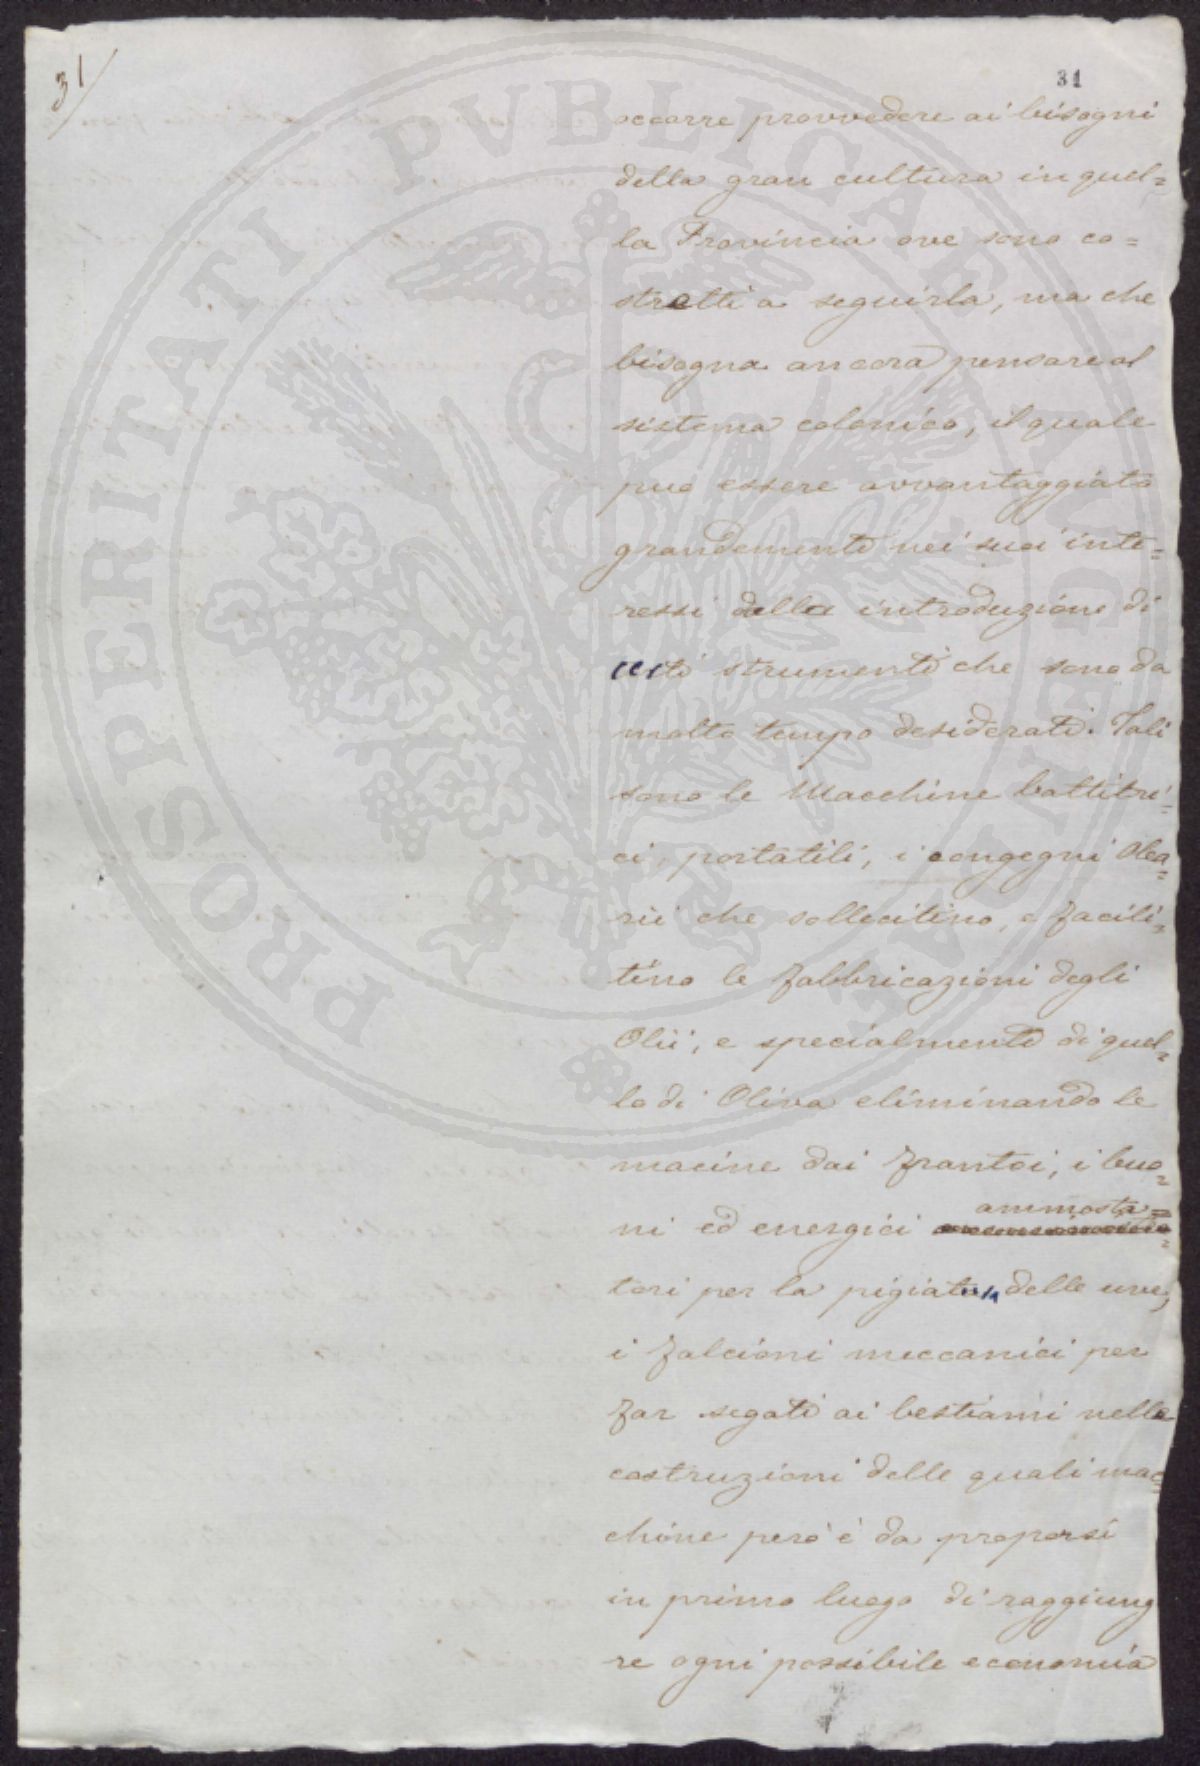 31
31
occorre provvedere ai bisogni
della gran cultura in quel=
la Provincia ove sono co=
stretti a seguirla, ma che
bisogna ancora pensare al
sistema colonico, il quale
può essere avvantaggiato
grandemente nei suoi inte=
ressi dalla introduzione di
certi strumenti che sono da
molto tempo desiderati. Tali
sono le Macchine battitri=
ci, portatili, i congegni Olea=
rii che sollecitino, e facili=
tino le fabbricazioni degli
Olii, e specialmente di quel=
lo di Oliva eliminando le
macine dai frantoi, i buo=
ni ed energici ammosta=
tori per la pigiatura delle uve,
i falcioni meccanici per
far segati ai bestiami nelle
costruzioni delle quali mac=
chine però è da proporsi
in primo luogo di raggiung
re ogni possibile economia
PROSPERITATI PVBLICAE AVGENDAE